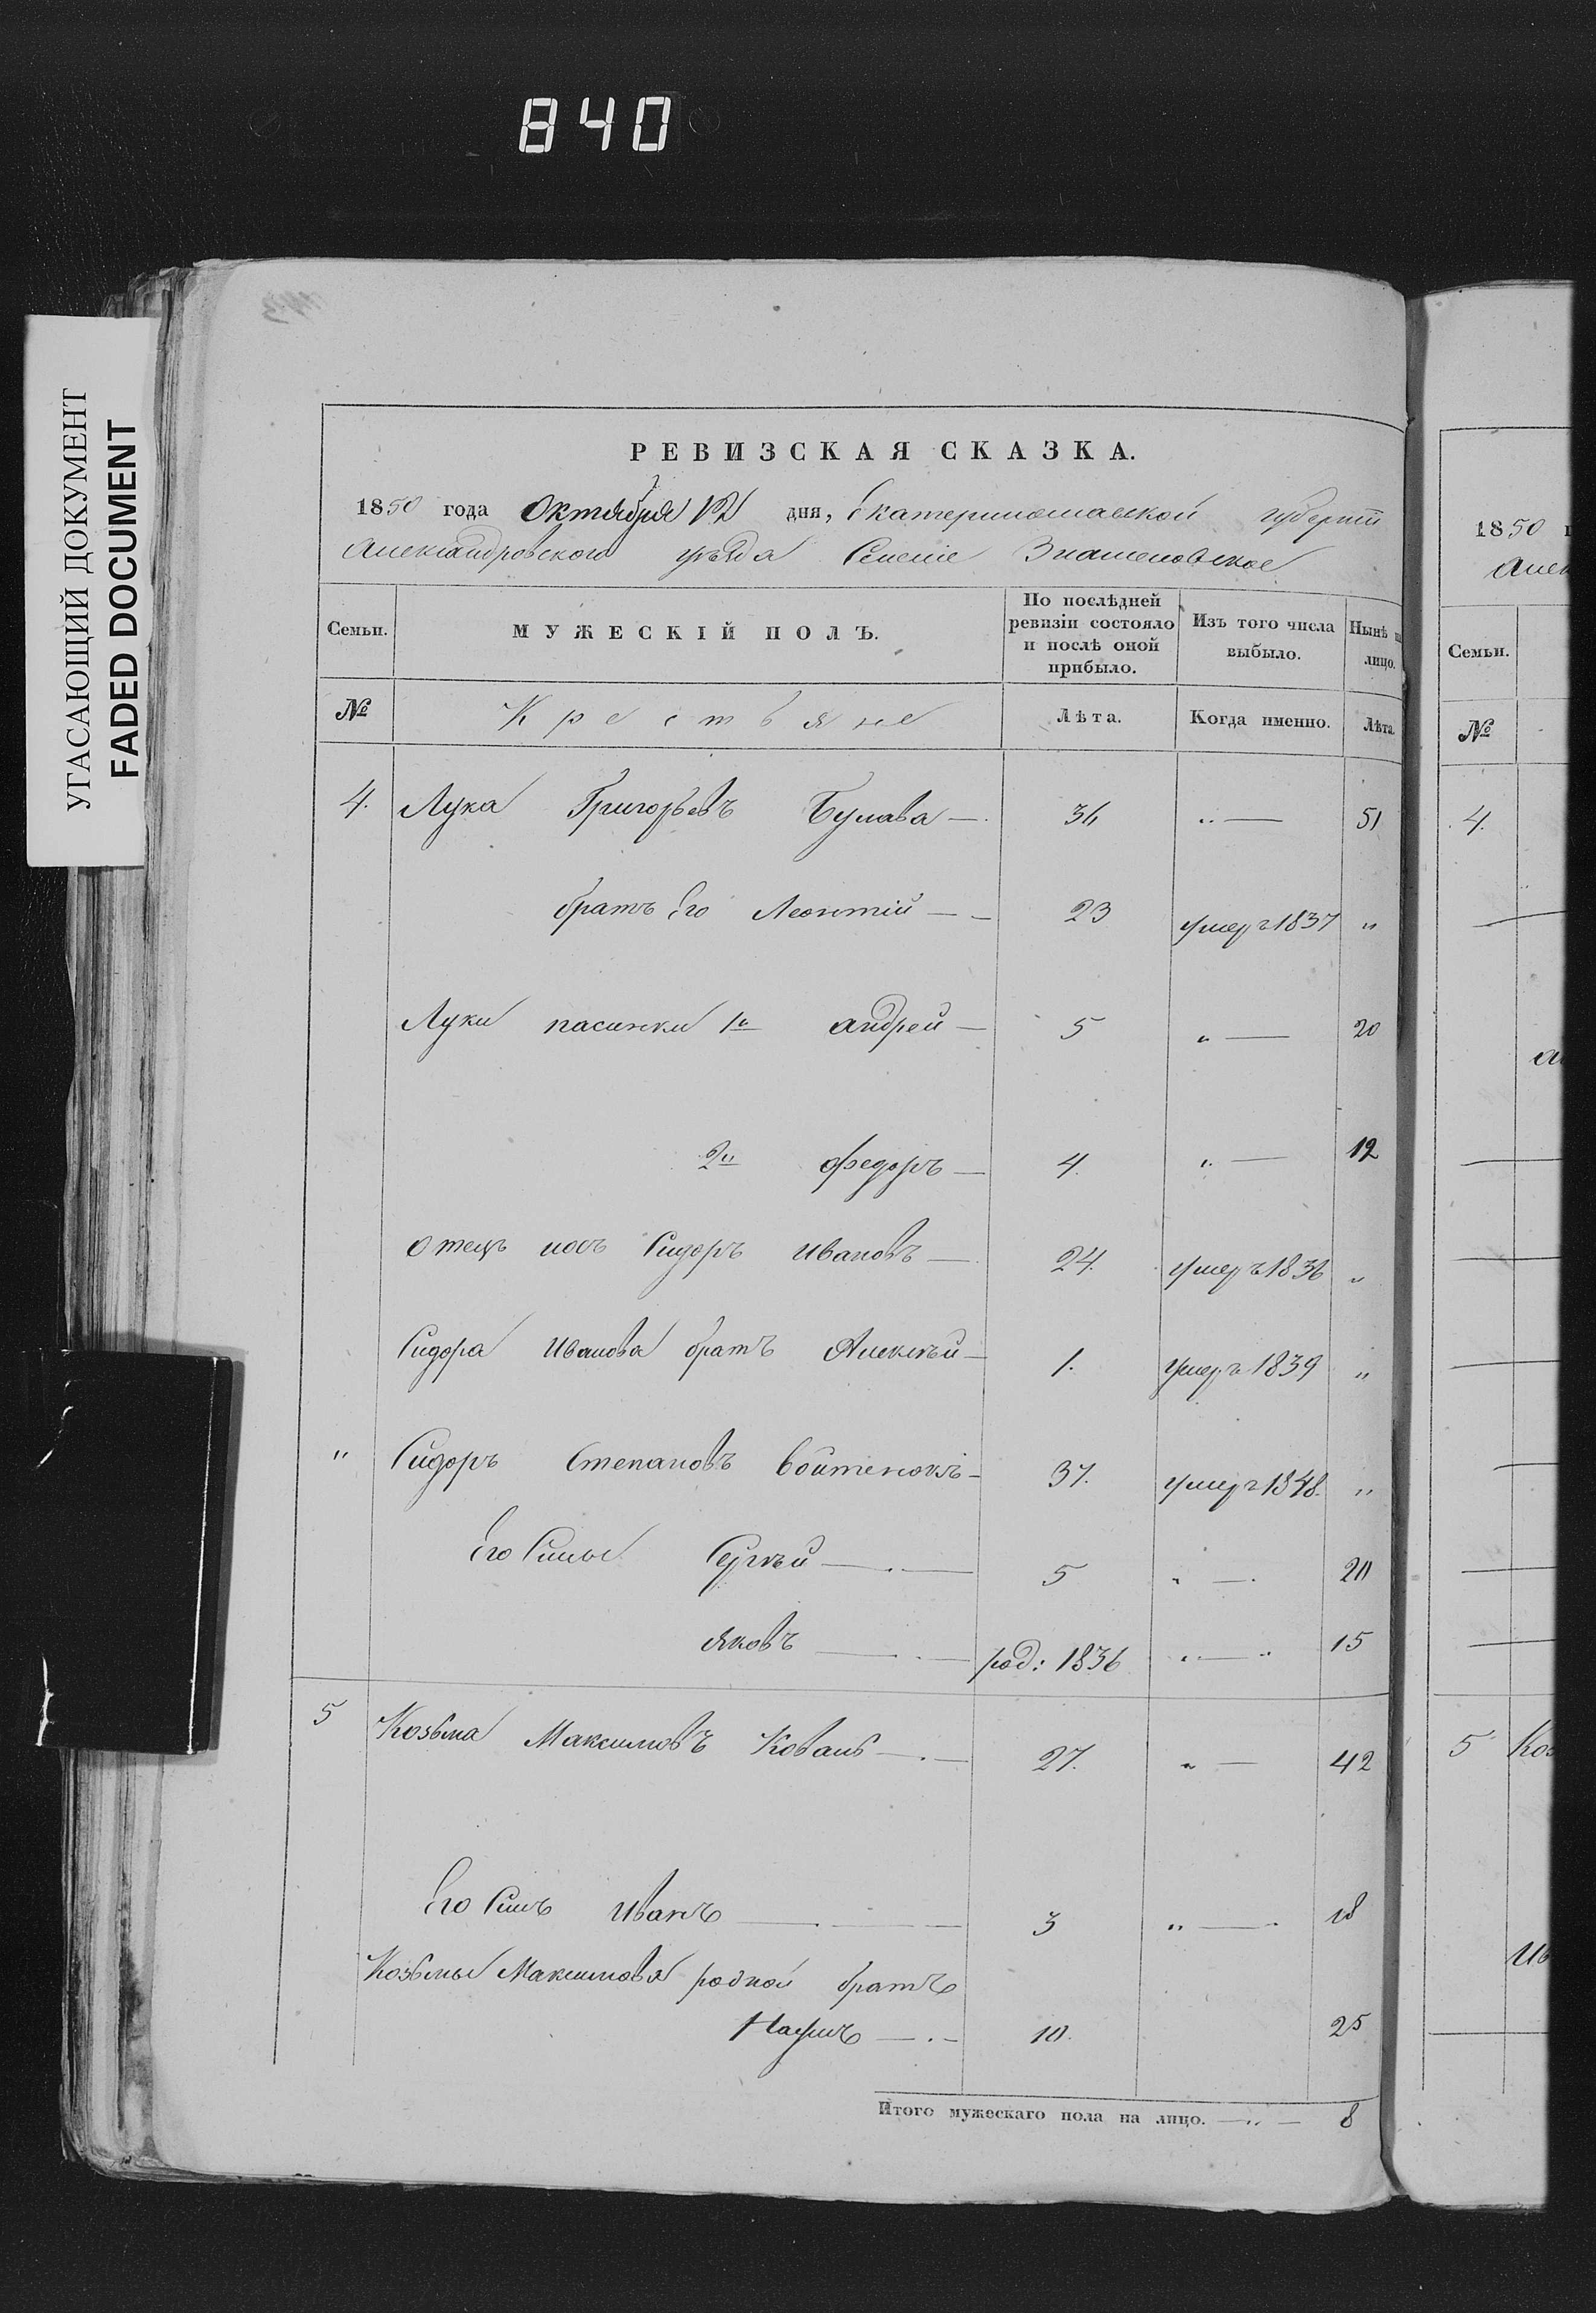 840
УГАСАЮЩИЙ ДОКУМЕНТ
FADED DOCUMENT
РЕВИЗСКАЯ СКАЗКА.
1850 года Октября 12 дня, Екатеринославской губернии
Александровского уѣзда Селеніе Знаменовское
Семьи. МУЖЕСКІЙ ПОЛЪ. По послѣдней ревизіи состояло и послѣ оной прибыло. Изъ того числа выбыло. Нынѣ н лицо.
№ Крестьяне Лѣта. Когда именно. Лѣта.
4. Лука Григорьевъ Булава — 36 „ — 51
братъ Его Леонтій — 23 умеръ 1837 „
Луки пасинки 1й андрей — 5 „ — 20
2й Федоръ — 4. „ — 19
Отецъ ихъ Сидоръ Ивановъ — 24. умеръ 1836 „
Сидора Иванова братъ Алексѣй — 1. умеръ 1839 „
„ Сидоръ Степановъ Войтенокъ — 37. умеръ 1848. „
Его Сины Сергѣй — 5 „ — 20
Яковъ — род: 1836 „ — 15
5 Козьма Максимовъ Коваль — 27. „ — 42
Его Синъ Иванъ — 3 „ — 18
Козьмы Максимова родной братъ
Наумъ — 10. 25
Итого мужескаго пола на лицо. — „ — 8
1850
Алек
Семьи.
№
4.
5 Коз
Ив